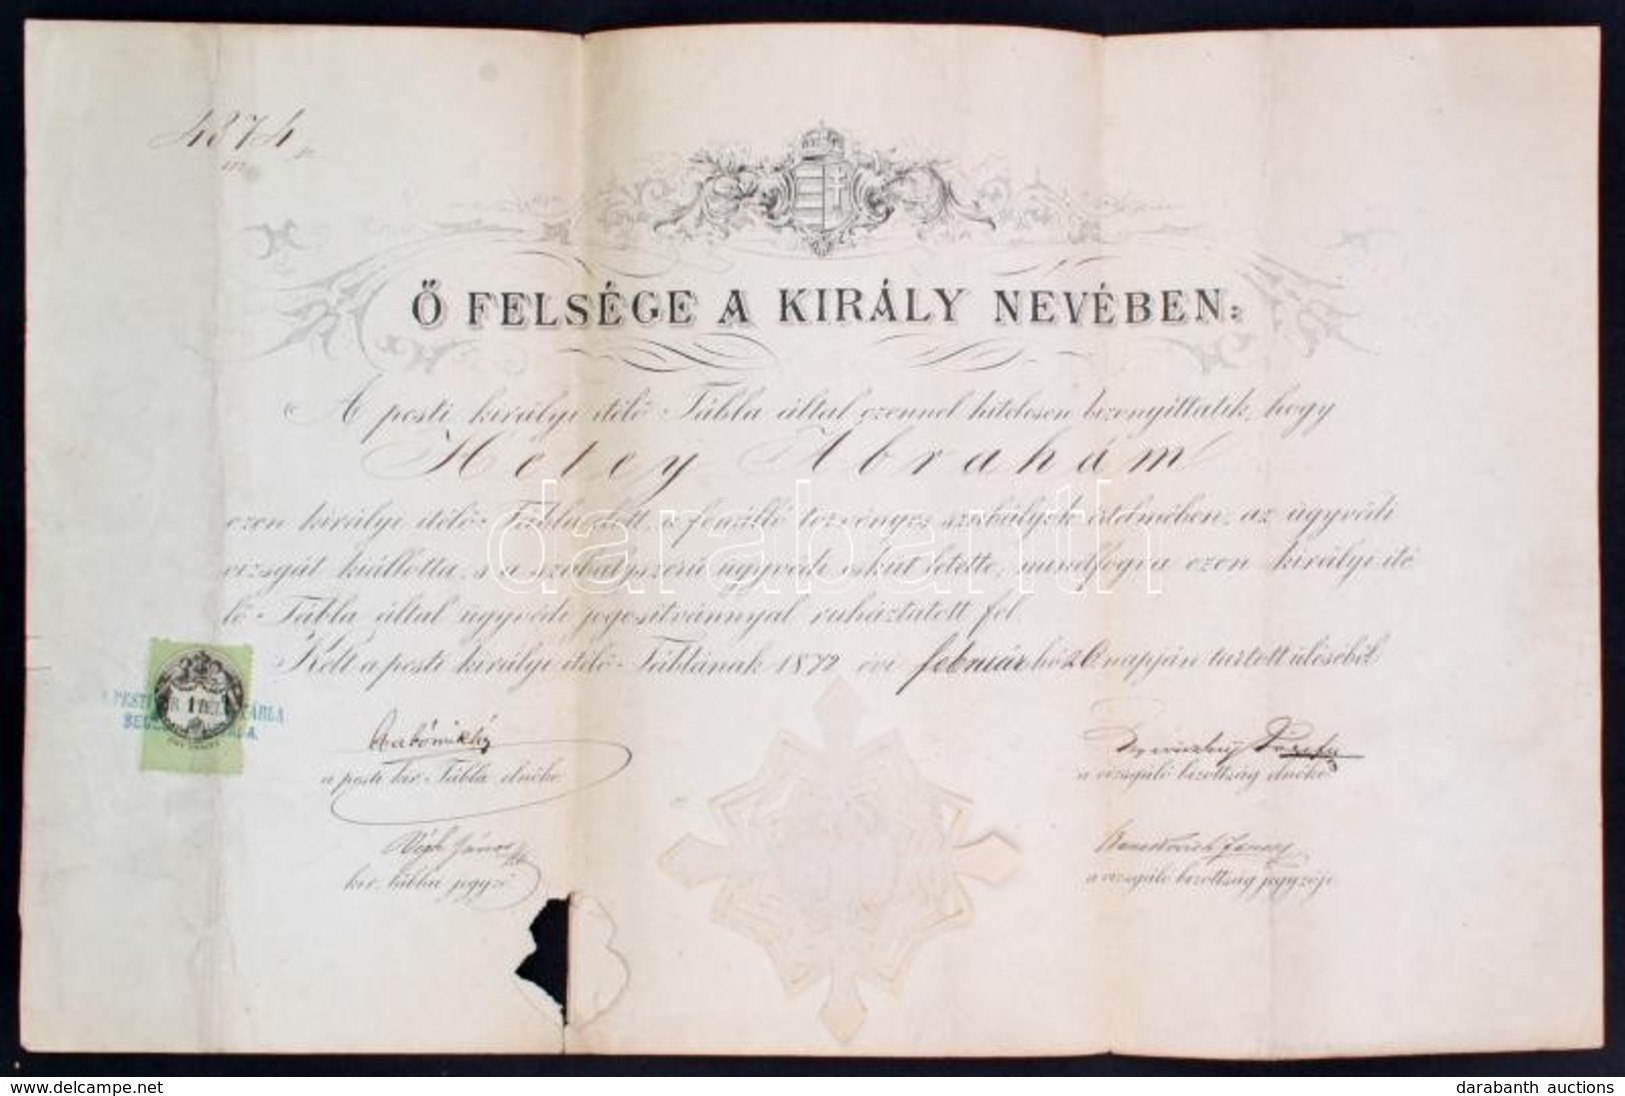 4374
Ő FELSÉGE A KIRÁLY NEVÉBEN:
A pesti királyi itélő Tábla által ezennel hitelesen bizonyittatik, hogy
Hetey Abrahám
ezen királyi itélő Tábla előtt, a fenálló törvényes szabályok értelmében, az ügyvédi
vizsgát kiállotta, s a szabályszerű ügyvédi esküt letette, mindfogva ezen királyi ité
lő Tábla által ügyvédi jogosítvánnyal ruháztatott fel.
Kelt a pesti királyi itélő Táblának 1872 évi február hó 26 napján tartott üléséből.
a pesti kir. Tábla elnöke
a vizsgáló bizottság elnöke
Végh János
kir. táblai jegyző
a vizsgáló bizottság jegyzője
darabanth
www.delcampe.net
darabanth auctions